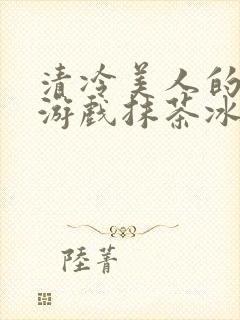 清冷美人的
游戏抹茶冰
陸菁